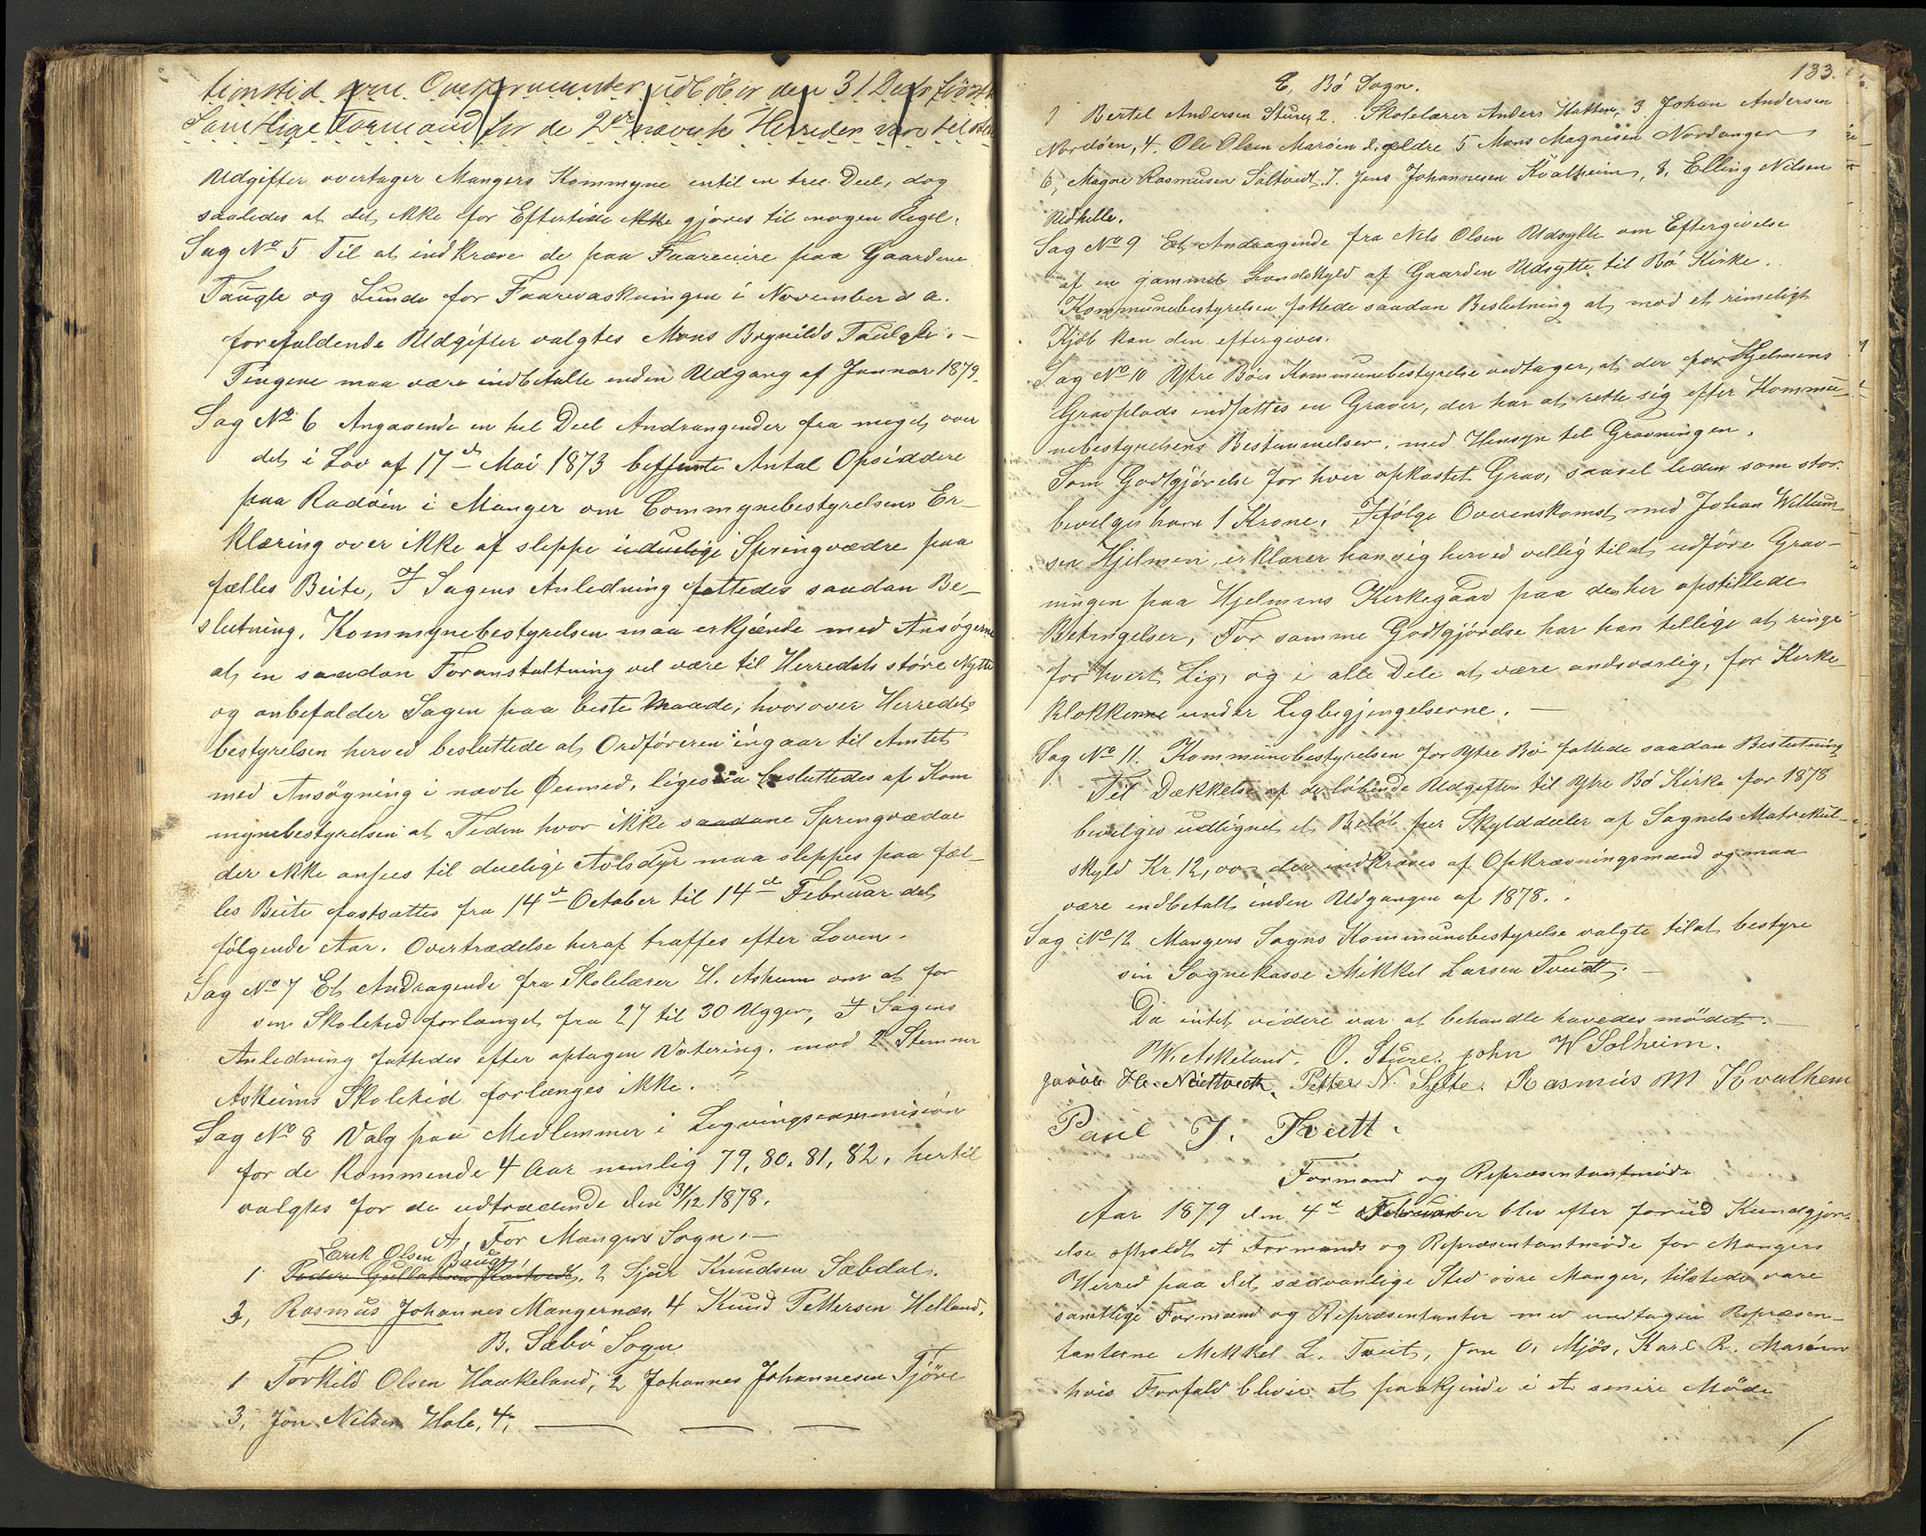 timstid som Overformynder udløber den 31 Decbr først
Samtlige Formænd for de 2de nævnte Herreder var tilstede
Udgifter overtager Mangers Kommyne entil en tree Deel, dog
saaledes at det ikke for Eftertiden ikke gjøres til nogen Regel.
Sag No 5 Til at indkræve de paa Faareeiere paa Gaardene
Taugle og Lunde for Faarevaskningen i November d a.
forefaldende Udgifter valgtes Mons Brynilds Taugle. —
Pengene maa være indbetalte inden Udgang af Januar 1879.
Sag No 6 Angaaende en hel Deel Andragender fra meget over
det i Lov af 17de Mai 1873 bestemte Antal Opsiddere
paa Radøen i Manger om Commynebestyrelsens Er-
klæring over ikke at sleppe uduelige Springvædre paa
fælles Beite, I Sagens Anledning fattedes saadan Be-
slutning. Kommynebestyrelsen maa erkjende med Ansøgerne
at en saadan Foranstaltning vil være til Herredets større Nytte
og anbefalder Sagen paa beste Maade; hvorover Herreds-
bestyrelsen herved besluttede at Ordføreren ingaar til Amtet
med Ansøgning i nævte Øiemed, ligesaa besluttedes af Kom
mynebestyrelsen at Tiden hvor ikke saadane Springvædre
der ikke ansees til duelige Avlsdyr maa sleppes paa fæl-
les Beite fastsættes fra 14de October til 14de Februar det
følgende Aar. Overtrædelse heraf straffes efter Loven.
Sag No 7 Et Andragende fra Skolelærer H. Askeim om at for
sin Skoletid forlænget fra 27 til 30 Ugger, I Sagens
Anledning fattedes efter optagen Votering. mod 2 Stemmer
Askeims Skoletid forlænges ikke.
Sag No 8 Valg paa Medlemmer i Ligningscommision
for de kommende 4 Aar nemlig 79, 80, 81, 82. hertil
valgtes for de udtrædende den 31/12 1878.
A, For Mangers Sogn. —
Erik Olsen Bauge,
1 Peder Gullaksen, 2 Sjur Knudsen Sæbdal.
3, Rasmus Johannes Mangernæs 4 Knud Pettersen Helland.
B. Sæbø Sogn
1 Torkild Olsen Haukeland, 2 Johannes Johannesen Fjøre
3, Jon Nilsen Hole, 4, — — —
133.
E, Bø Sogn.
1 Bertel Andersen Sture, 2. Skolelærer Anders Hatten, 3. Johan Andersen
Nordøen, 4. Ole Olsen Marøen d. ældre 5 Mons Magnesen Nordanger
6, Magne Rasmusen Soltvedt, 7. Jens Johannesen Kvalheim, 8. Elling Nilsen
Udhelle.
Sag No 9 Et Andragende fra Nils Olsen Udsylte om Eftergivelse
af en gammel Landskyld af Gaarden Udsytte til Bø Kirke.
Kommunebestyrelsen fattede saadan Beslutning at mod et rimeligt
Kjøb kan den eftergives.
Sag No 10 Ytre Bøes Kommunebestyrelse vedtager, at der for Hjelmens
Gravplads indsættes en Graver, der har at rette sig efter Kommu
nebestyrelsens Bestemmelser. med Hensyn til Gravningen.
Som Godtgjørelse for hver opkastet Grav, saavel liden som stor
bevilges ham 1 Krone. Ifølge Overenskomst med Johan Willum
sen Hjelmen, erklærer han sig herved villig til at udføre Grav-
ningen paa Hjelmens Kirkegaard paa de her opstillede
Betingelser, For samme Godtgjørelse har han tillige at ringe
for hvert Lig, og i alle Dele at være andsvarlig, for Kirke-
klokkerne under Ligbegjengelserne. —
Sag No 11. Kommunebestyrelsen for Ytre Bø fattede saadan Beslutning
Til Dækkelse af de løbende Udgifter til Ytre Bø Kirke for 1878
bevilges udlignet et Beløb per Skylddaler af Sognets Matrekul-
skyld Kr 12,00 der indkræves af Opkrævningsmænd og maa
være indbetalt inden Udgangen af 1878..
Sag No 12 Mangers Sogns Kommunebestyrelse valgte til at bestyre
sin Sognekasse Mikkel Larsen Tveidt. —
Da intet videre var at behandle hævedes mødet. —
W. Askeland. O. Sture. John W Solheim.
Petter N. Sylte. Rasmus M Kvalhem
Paul J. Tveitt.
Formand og Repræsentantmøde
Aar 1879 den 4de Februar blev efter forud Kundgjør-
else afholdt et Formands og Repræsentantmøde for Mangers
Herred paa det sædvanlige Sted øvre Manger, tilstede vare
samtlige Formænd og Repræsentanter med undtagen Repræsen-
tanterne Mikkel L. Tveit, Jon O. Mjøs, Karl R. Marøen
hvis Forfald bliver at paakjende i et senere Møde